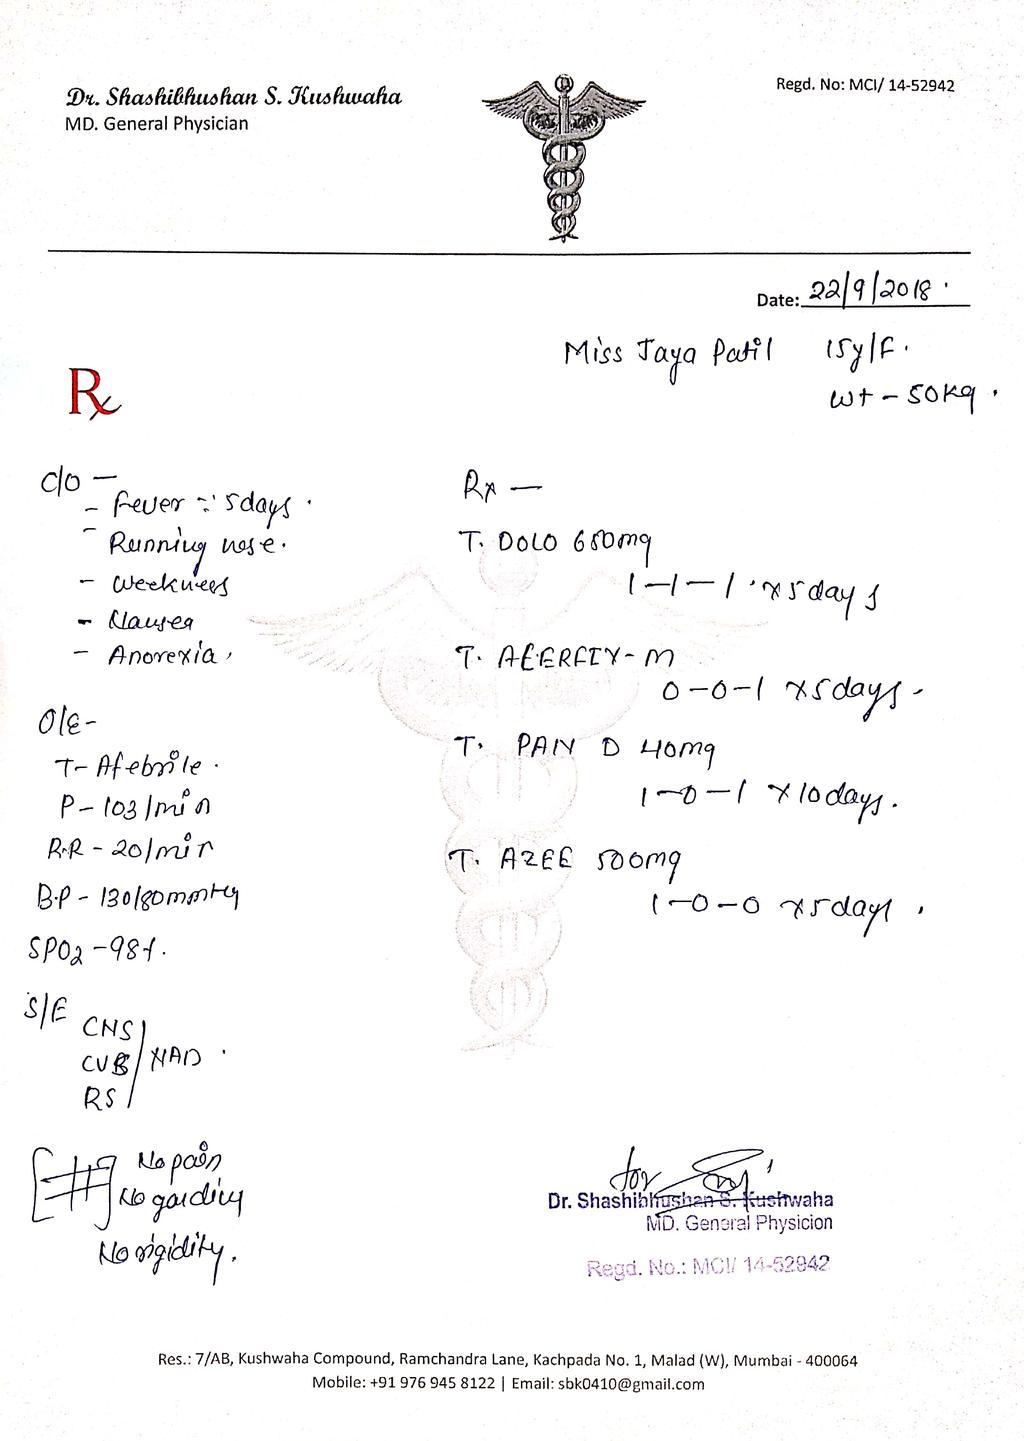 Dr. Shashibhushan S. Kushwaha
MD. General Physician
Regd. No: MCI/ 14-52942
Date: 22/9/2018
Miss Jaya Patil 15y/F.
Wt - 50kg.
Rx
C/O -
- Fever ∵ 5days.
- Running nose.
- Weekness
- Nausea
- Anorexia,
O/E-
T- Afebrile.
P- 103/min
R.R - 20/min
B.P - 130/80mmHg
SPO2 - 98%.
S/E
CNS
CVS NAD.
RS
No pain
No garding
No rigidity.
Rx -
T. DOLO 650mg
1-1-1 x 5days
T. -M
0-0-1 x 5days.
T. PAN D 40mg
1-0-1 x 10days.
T. AZEE 500mg
1-0-0 x 5days.
for
Dr. Shashibhushan S. Kushwaha
MD. General Physicion
Regd. No.: MCI/ 14-52942
Res.: 7/AB, Kushwaha Compound, Ramchandra Lane, Kachpada No. 1, Malad (W), Mumbai - 400064
Mobile: +91 976 945 8122 | Email: sbk0410@gmail.com